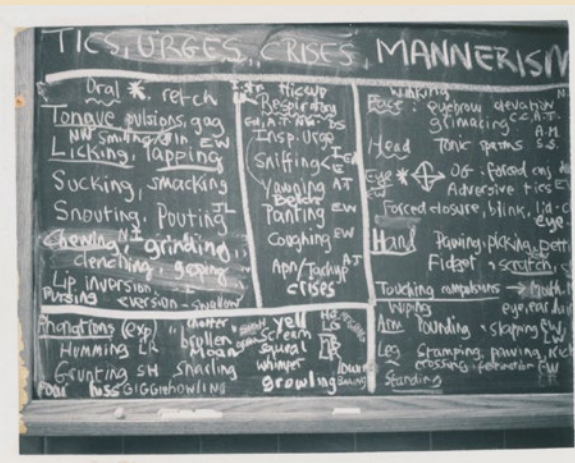 TICS, URGES, CRISES, MANNERISM
Oral * retch
Tongue pulsions, gag
Smiling EW
Licking, Tapping
Sucking, smacking
Snouting, Pouting JL
Chewing, NI grinding,
clenching, gaping
Lip inversion
Pursing eversion - swallow
Hiccup
Respiratory
Insp. Urge
Sniffing
Yawning AT
Belch
Panting EW
Coughing EW
Apn/Tachyp AT
crises
Winking
Face: eyebrow elevation
grimacing CC, A.T.
A.M.
Head Tonic spasms S.S.
Eye * OG - forced
Adversive tics
Forced closure, blink, lid
eye
Hand Pawing, picking,
Fidget, scratch,
Touching compulsions → Mouth,
Wiping eye, ear,
Arm Pounding, slapping EW
LW
Leg Stamping, pawing, kick
crossing
Standing
Phonations (exp) yell
Humming LR Moan Scream
squeal
Grunting SH snarling whimper
hiss GIGGle HOWLING growling